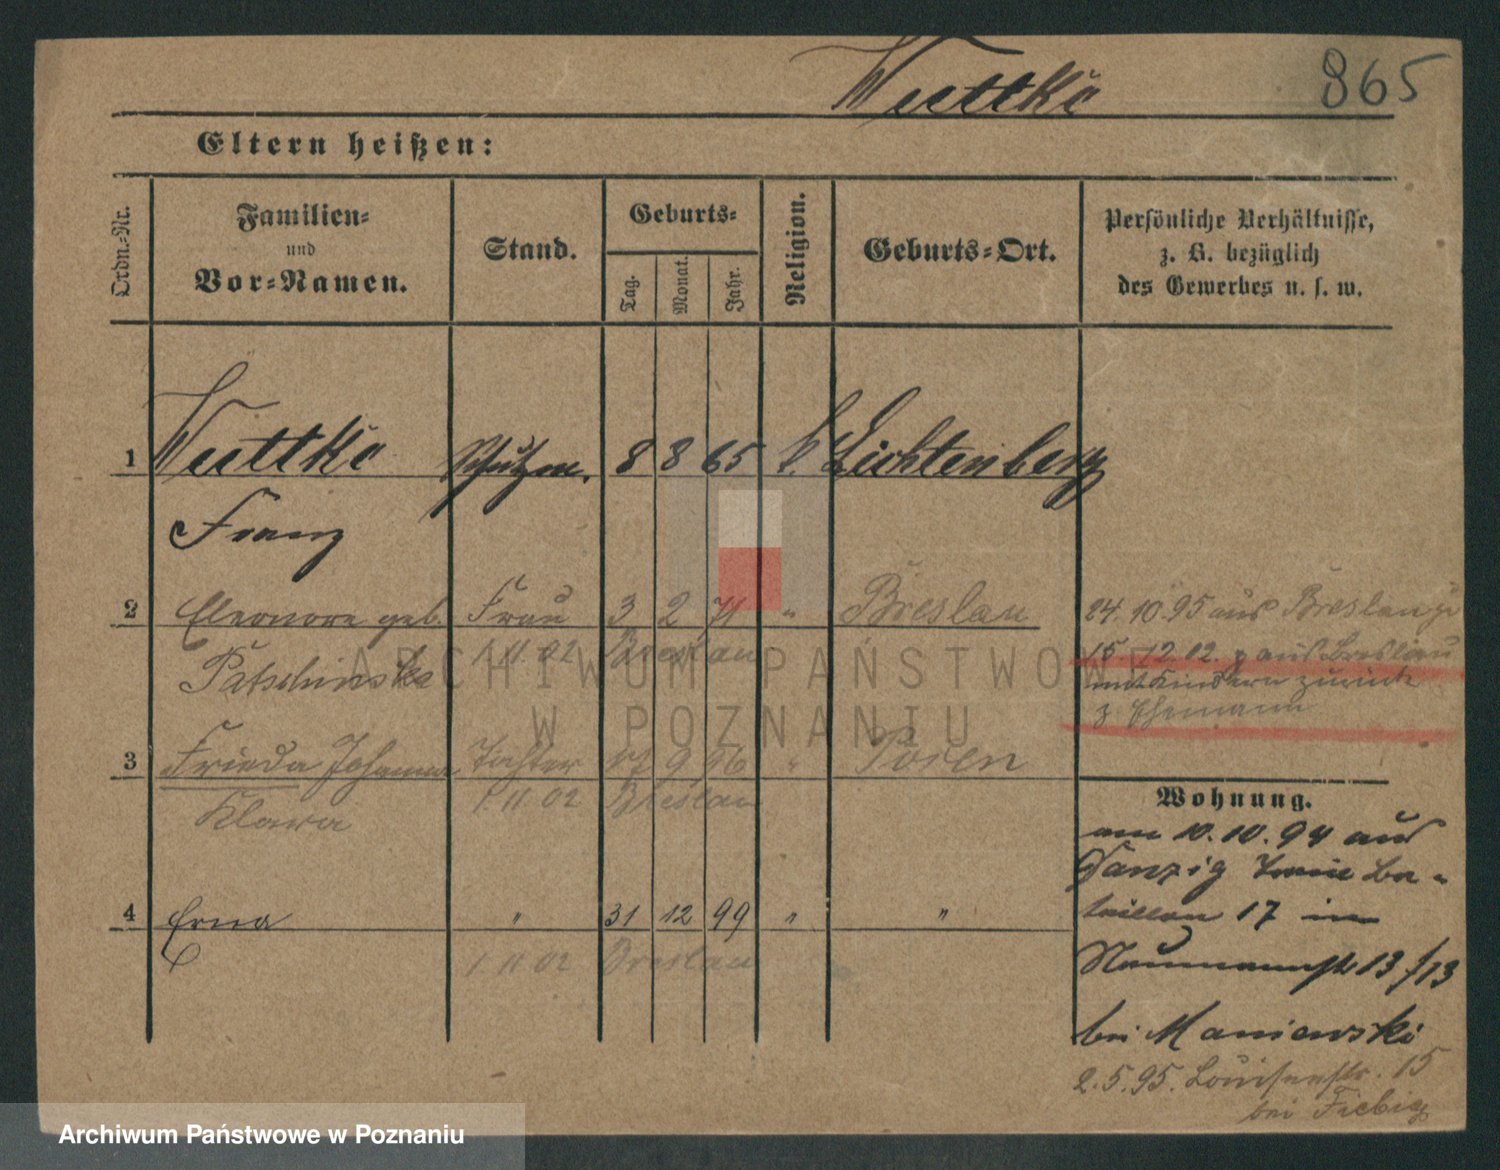 Wuttke 865
Eltern heißen:
Ordn.-Nr. Familien- und Vor-Namen. Stand. Geburts- Tag. Monat. Jahr. Religion. Geburts-Ort. Persönliche Verhältnisse, z. B. bezüglich des Gewerbes u. s. w.
1 Wuttke Schutzm. 8 8 65 k. Lichtenberg
Franz
2 Eleonore geb. Frau 3 2 71 " Breslau
24.10.95 aus Breslau
1.11.02 Breslau
15.12.02. aus Breslau
mit Kindern zurück
z. Ehemann
3 Frieda Johanna Tochter 9 96 " Posen
Klara 1.11.02 Breslau
4 Erna " 31 12 99 " "
1.11.02 Breslau
Wohnung.
am 10.10.94 aus
Danzig
17 in
Naumannstr 13/13
bei Maniewski
2.5.95. Louisenstr. 15
bei Fiebig
ARCHIWUM PAŃSTWOWE
W POZNANIU
Archiwum Państwowe w Poznaniu